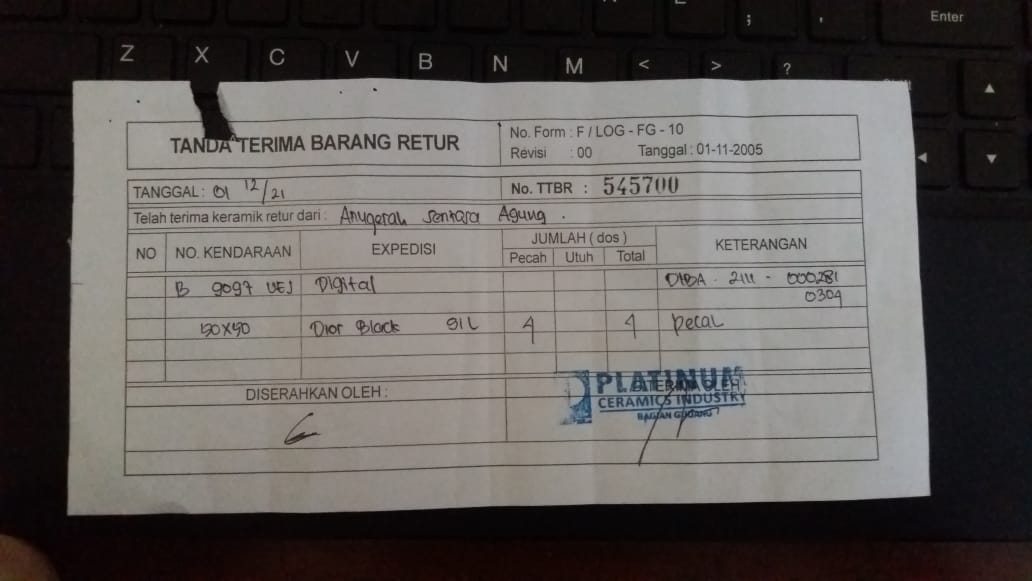 Z X C V B N M < > ?
; , Enter
TANDA TERIMA BARANG RETUR
No. Form : F / LOG - FG - 10
Revisi : 00 Tanggal : 01-11-2005
TANGGAL : 01 12/21 No. TTBR : 545700
Telah terima keramik retur dari : Anugerah Sentara Agung .
NO NO. KENDARAAN EXPEDISI JUMLAH ( dos ) KETERANGAN
Pecah Utuh Total
B 9097 UEJ Digital - 2111 - 000281
0304
50x50 Dior Black 4 4 pecah
DISERAHKAN OLEH : DITERIMA OLEH
PLATINUM
CERAMICS INDUSTRY
BAGIAN GUDANG